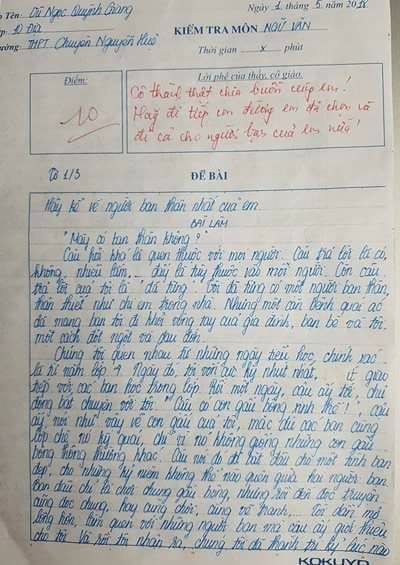 Tên: Dũ Ngọc Quỳnh Giang
Ngày 1 tháng 5 năm 2018
p: 10 Địa
KIỂM TRA MÔN NGỮ VĂN
ường: THPT Chuyên Nguyễn Huệ
Thời gian x phút
Điểm:
Lời phê của thầy, cô giáo.
10
Cô thành thật chia buồn cùng em!
Hãy đi tiếp con đường em đã chọn và
đi cả cho người bạn của em nữa!
Tờ 1/3
ĐỀ BÀI
Hãy kể về người bạn thân nhất của em
BÀI LÀM
"Mày có bạn thân không?"
Câu hỏi khá là quen thuộc với mọi người. Câu trả lời là có,
không, nhiều lắm,... đấy là tùy thuộc vào mỗi người. Còn câu
trả lời của tôi là "đã từng". Tôi đã từng có một người bạn thân,
thân thiết như chị em trong nhà. Nhưng một căn bệnh quái ác
đã mang bạn tôi đi khỏi vòng tay của gia đình, bạn bè và tôi
một cách đột ngột và đau đớn.
Chúng tôi quen nhau từ những ngày tiểu học, chính xác
là từ năm lớp 4. Ngày đó, tôi vốn cực kỳ nhút nhát, ít giao
tiếp với các bạn học trong lớp. Rồi một ngày, cậu ấy tới, chủ
động bắt chuyện với tôi. "Cậu có con gấu bông xinh thế!", cậu
ấy nói như vậy về con gấu của tôi, mặc dù các bạn cùng
lớp chê nó kỳ quái, chỉ vì nó không giống những con gấu
bông thông thường khác. Câu nói đó đã bắt đầu cho một tình bạn
đẹp, cho những kỷ niệm không thể nào quên giữa hai người bạn.
Ban đầu chỉ là chơi chung gấu bông, nhưng rồi đến đọc truyện
cũng đọc chung, hay cùng chơi, cùng vẽ tranh... Tôi dần mở
lòng hơn, làm quen với những người bạn mà cậu ấy giới thiệu
cho tôi. Và rồi tôi nhận ra, chúng tôi đã thành tri kỷ lúc nào
KOKUYO